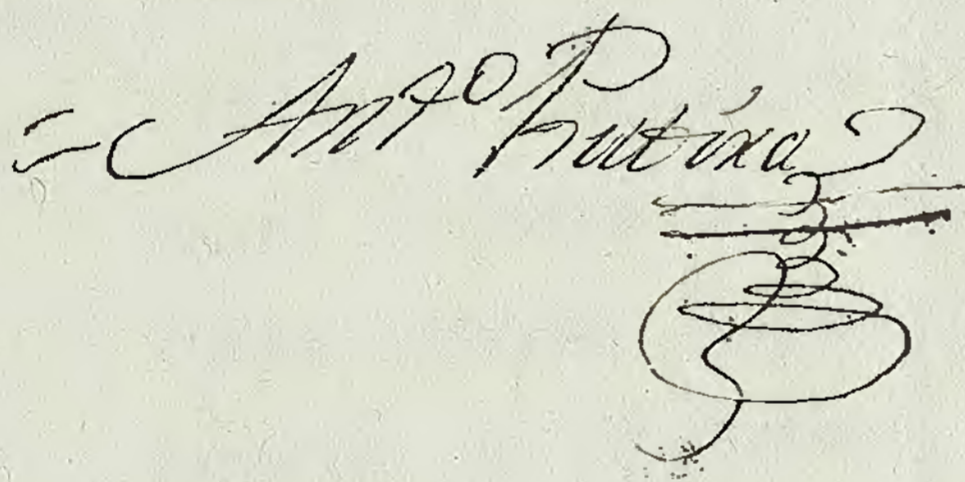 = Antº Rutixa